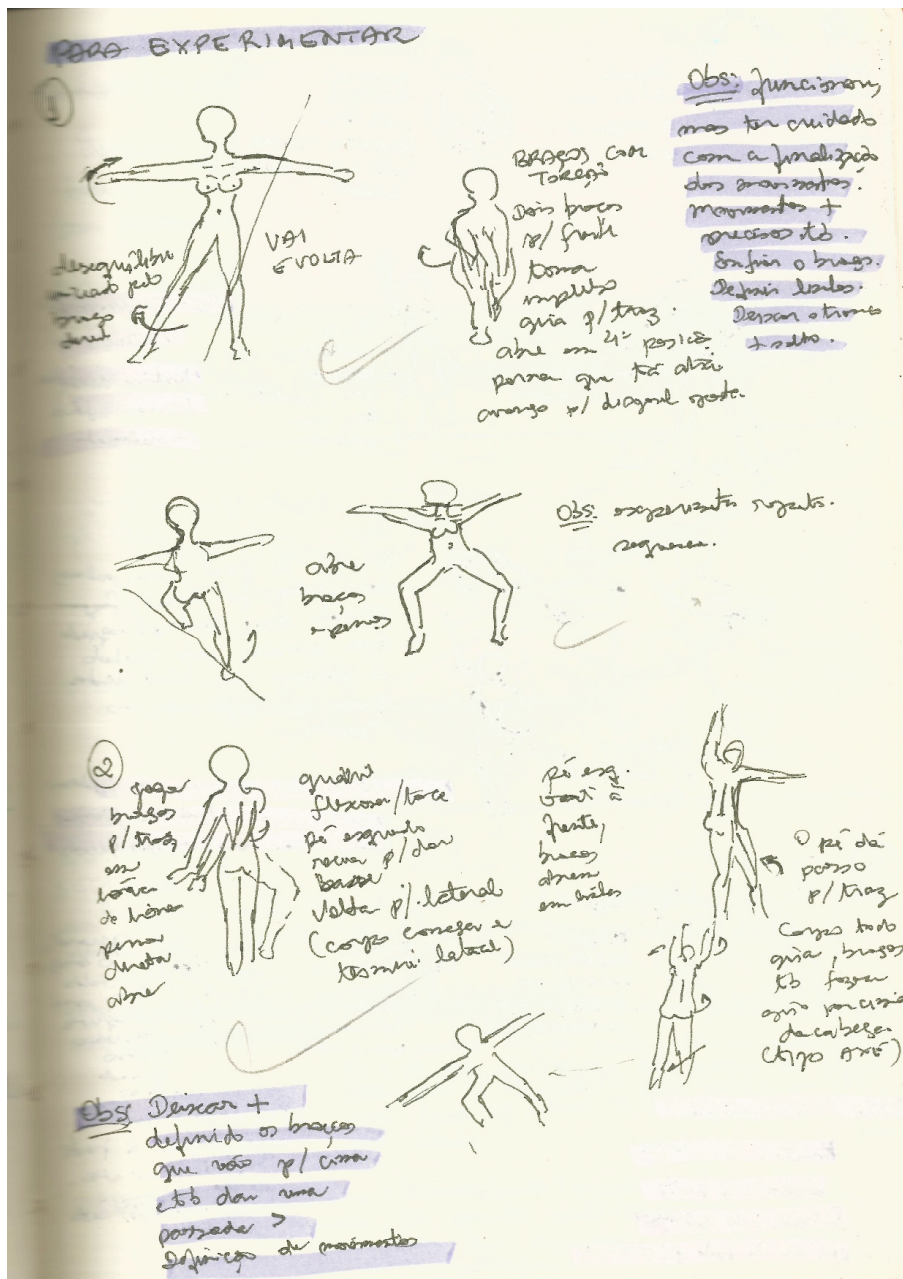 PARA EXPERIMENTAR
1
desequilíbrio
iniciado pelo
braço
VAI
E VOLTA
BRAÇOS COM
TORÇÃO
Dois braços
p/ frente
toma
impulso
gira p/ traz.
abre em 4ª posição.
perna que tá atrás
avança p/ diagonal oposta.
Obs: funcionou,
mas ter cuidado
com a finalização
dos movimentos.
movimentos +
precisos tb.
o braço.
Definir
Deixar o tronco
+ solto.
abre
braços
e pernas
Obs: experimentar
2
jogar
braços
p/ traz
em
de
perna
direita
abre
quadril
flexona/torce
pé esquerdo
recua p/ dar
base
Volta p/ lateral
(corpo começa e
lateral)
pé esq.
à
frente,
braços
abrem
em
O pé dá
passo
p/ traz
Corpo todo
gira, braços
tb fazem
giro por cima
da cabeça
(tipo AXÉ)
Obs: Deixar +
definido os braços
que vão p/ cima
e tb dar uma
passada >
Definição de movimentos